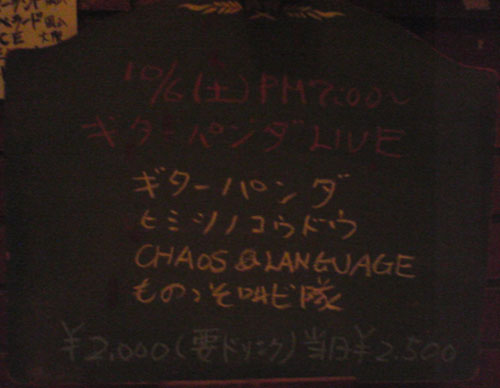 10/6(土)PM7:00〜
ギターパンダLIVE
ギターパンダ
ヒミツノコウドウ
CHAOS & LANGUAGE
ものっそ叫ビ隊
¥2,000(要ドリンク)当日¥2,500